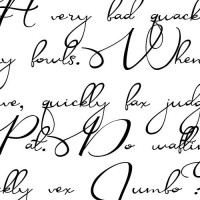 A very bad quack
y fowls. When
ve, quickly fax judg
Pat. Do waltz
ckly vex Jumbo?